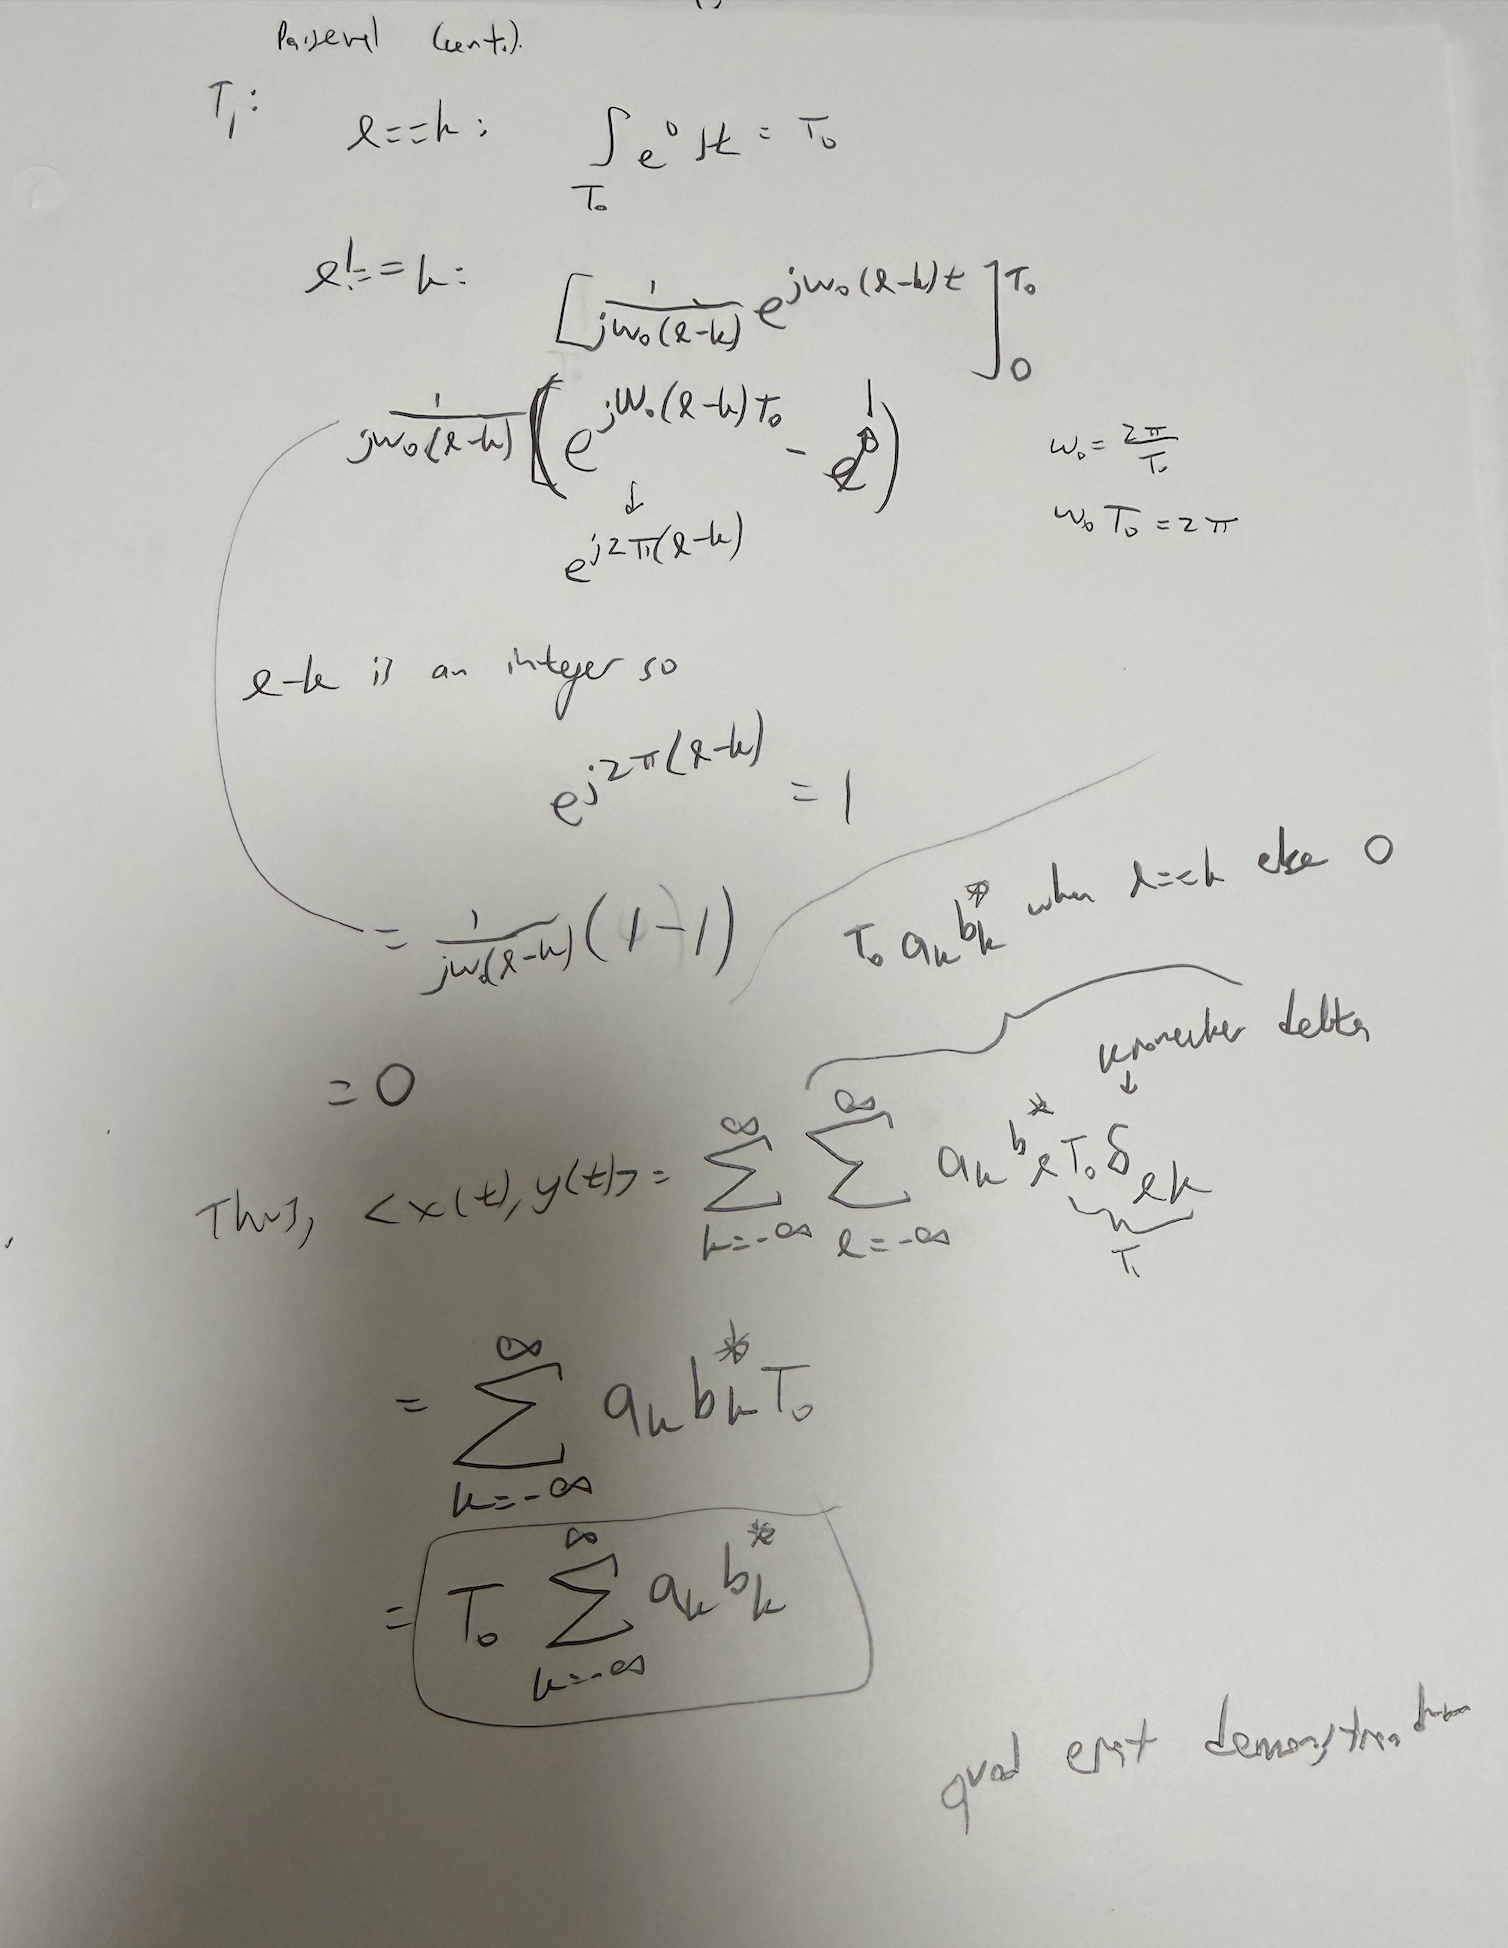 Parseval (cont.).
T₁:
l==k: ∫_{T₀} e⁰ dt = T₀
l!==k: [ 1/(jω₀(l-k)) e^{jω₀(l-k)t} ]₀^{T₀}
1/(jω₀(l-k)) ( e^{jω₀(l-k)T₀} - e⁰ ) 1
ω₀ = 2π/T₀
↓
ω₀T₀ = 2π
e^{j2π(l-k)}
l-k is an integer so
e^{j2π(l-k)} = 1
= 1/(jω₀(l-k)) (1-1)
T₀ a_k b_k^* when l==k else 0
= 0
kronecker delta
↓
Thus, <x(t), y(t)> = ∑_{k=-∞}^{∞} ∑_{l=-∞}^{∞} a_k b_l^* T₀ δ_{lk}
T₁
= ∑_{k=-∞}^{∞} a_k b_k^* T₀
= T₀ ∑_{k=-∞}^{∞} a_k b_k^*
quod erat demonstrandum